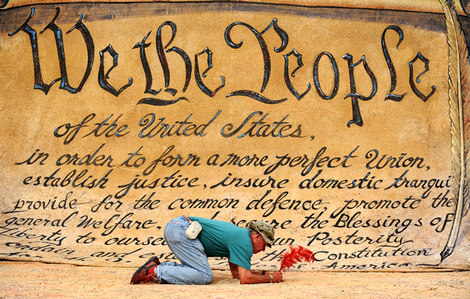 We the People
of the United States,
in order to form a more perfect Union,
establish justice, insure domestic tranqui
provide for the common defence, promote the
general Welfare, secure the Blessings of
liberty to ourse our Posterity
Constitution
America